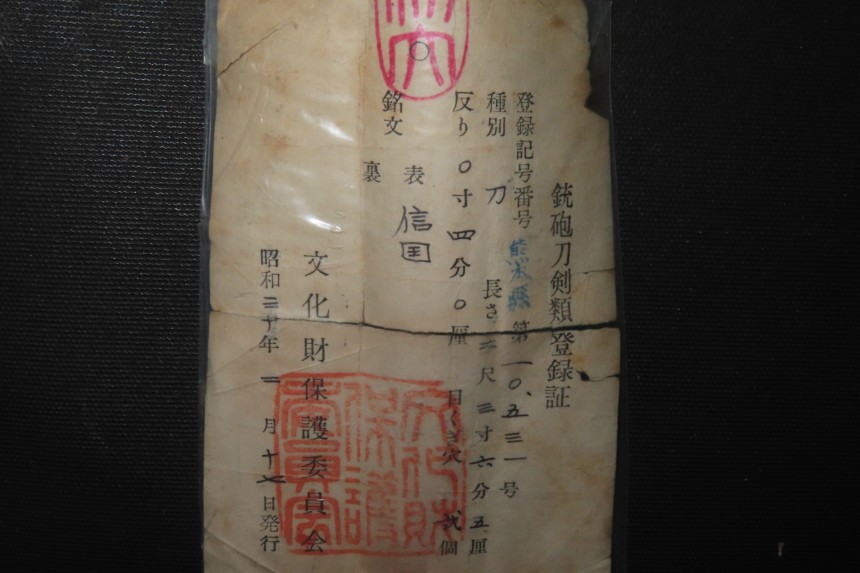 銃砲刀剣類登録証
登録記号番号 熊本縣 第一〇、五三一号
種別 刀 長さ 二尺三寸六分五厘
反り 〇寸四分〇厘 目くぎ穴 弐個
銘文 表 信国
裏
文化財保護委員会
昭和三十年二月十七日発行
文化財保護委員会